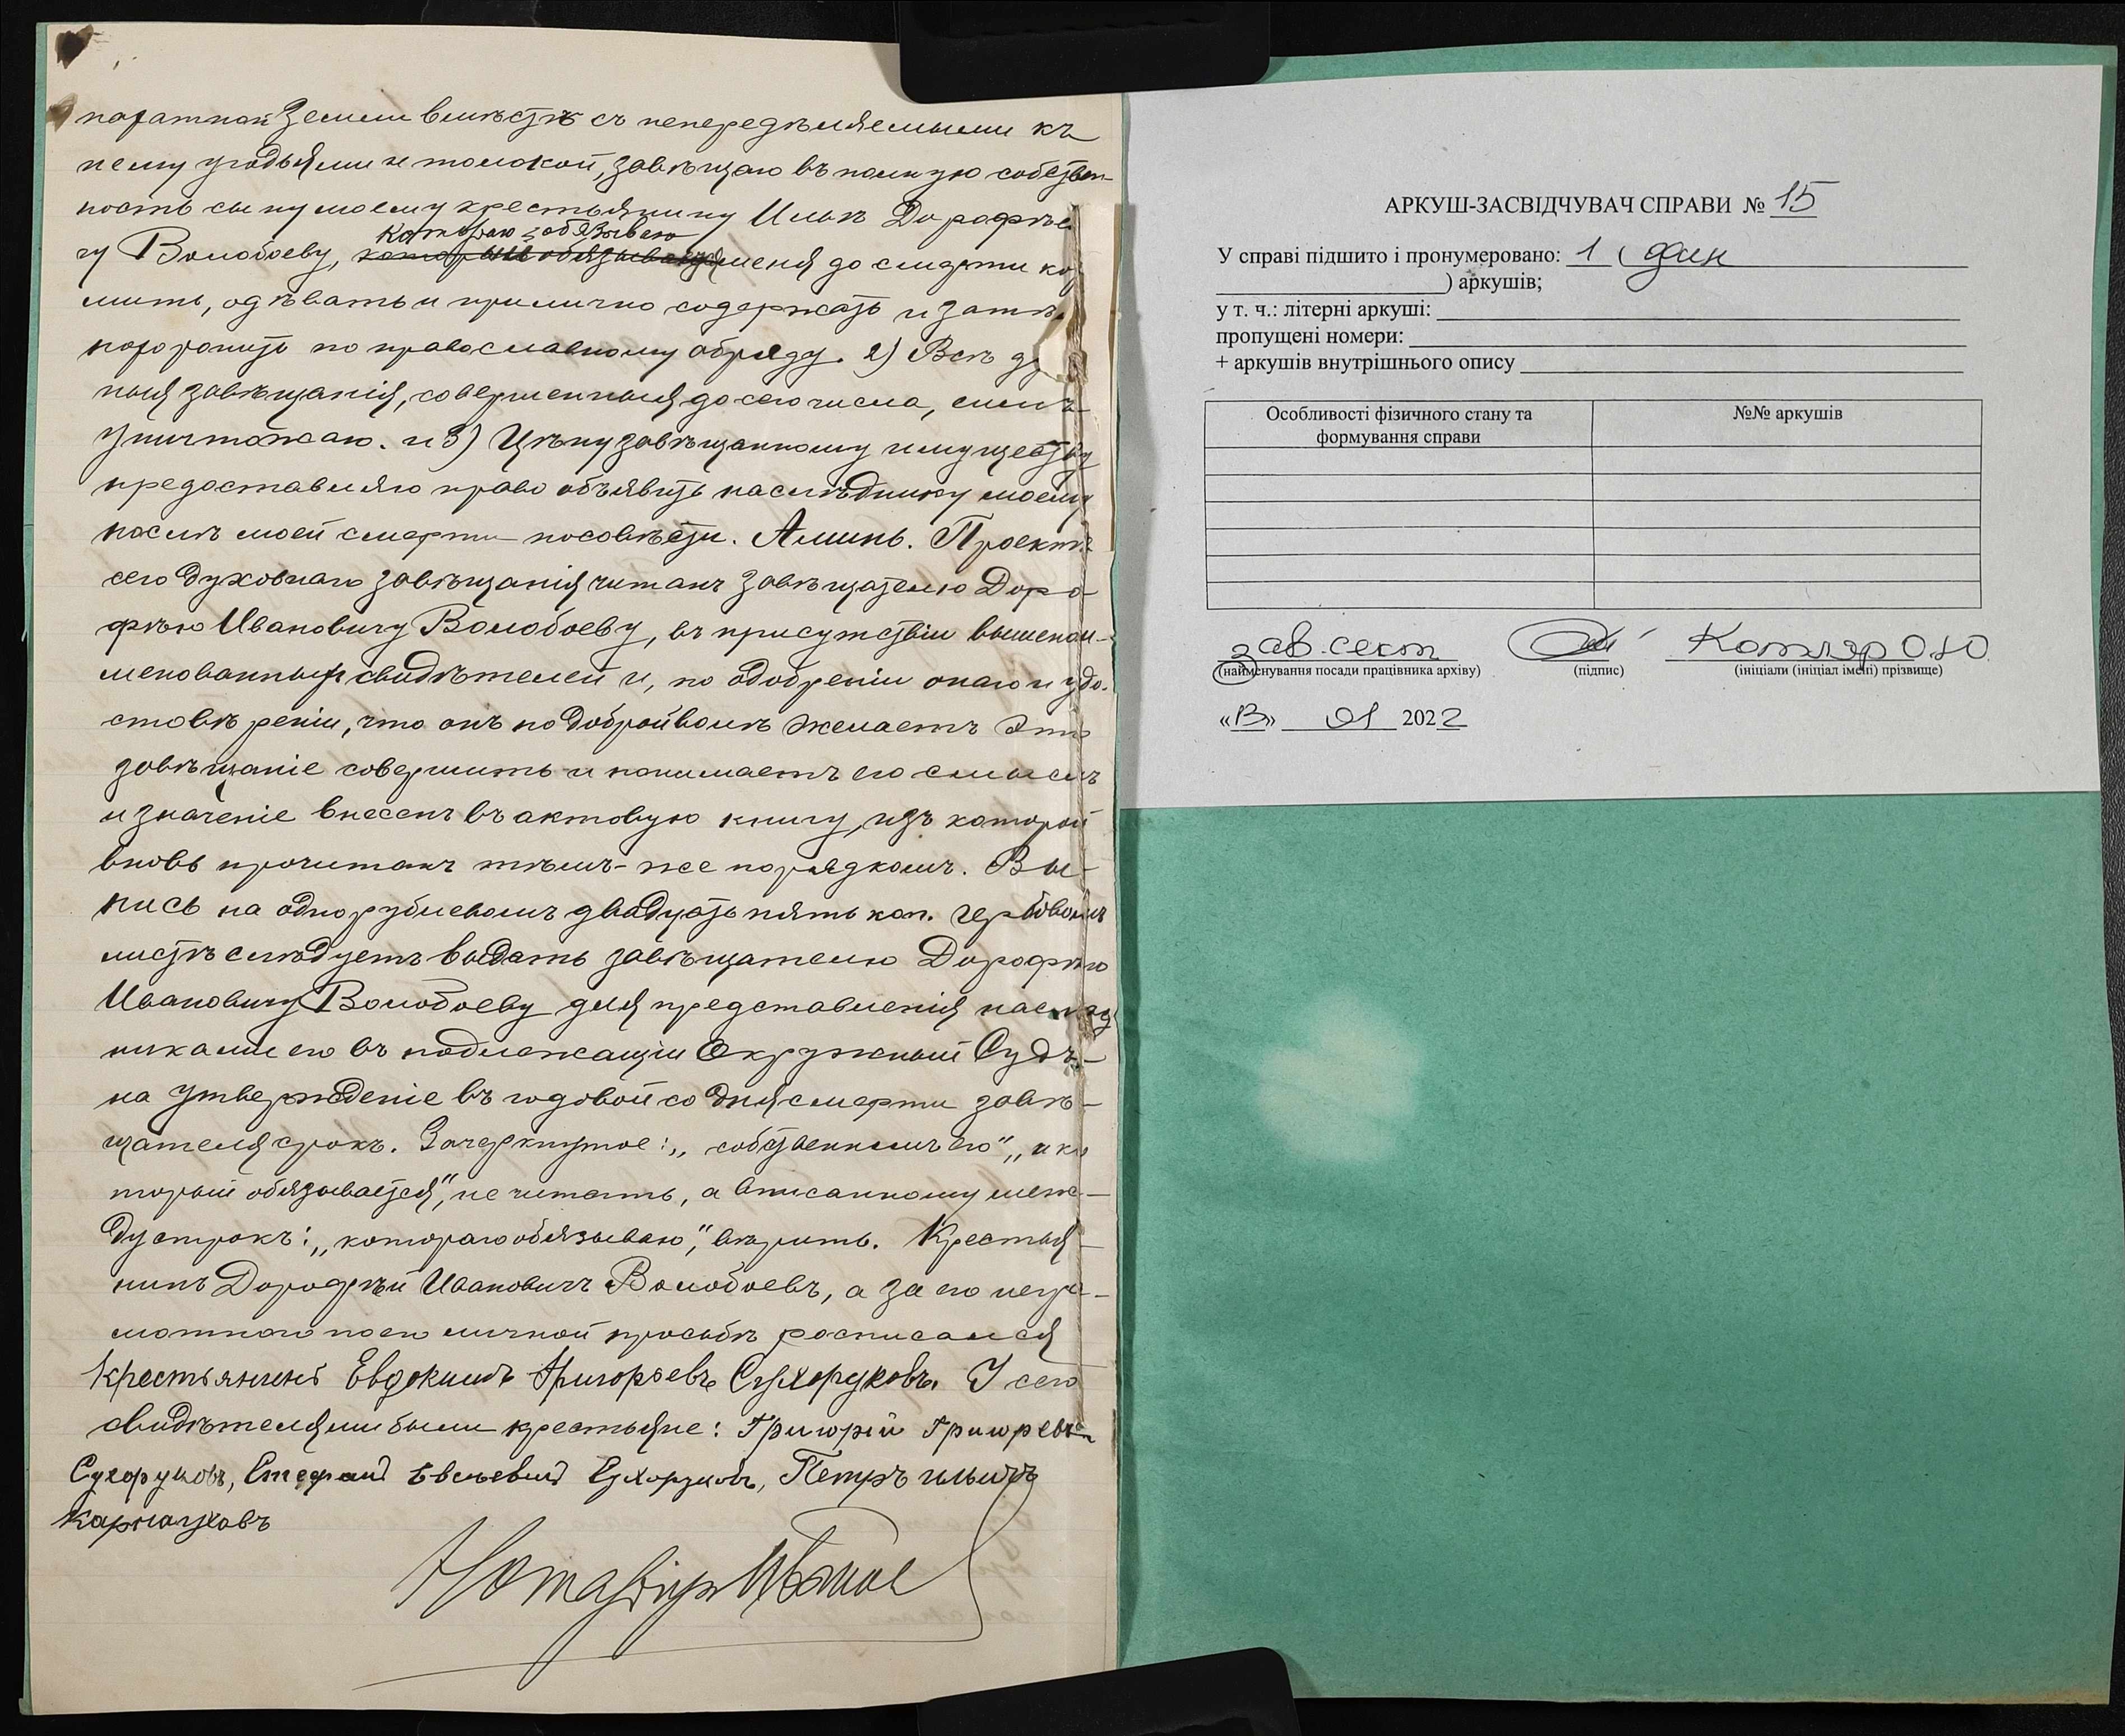 земли вмѣстѣ съ непередѣляемыми къ
нему угодьями и толокой, завѣщаю въ полную собствен-
ность сыну моему крестьянину Ильѣ Дорофѣе
ву Волобоеву, ~~который обязывается~~ котораго обязываю меня до смерти кор
мить, одѣвать и прилично содержать и затѣмъ
похоронить по православному обряду. 2) Всѣ ду
ныя завѣщанія, совершенныя до сего числа, симъ
уничтожаю. и 3) Цѣну завѣщанному имуществу
предоставляю право объявить наслѣднику моему
послѣ моей смерти по совѣсти. Аминь. Проектъ
сего духовнаго завѣщанія читанъ завѣщателю Доро-
фѣю Ивановичу Волобоеву, въ присутствіи вышепои-
менованныхъ свидѣтелей и, по одобреніи онаго и удо-
стовѣреніи, что онъ по доброй волѣ желаетъ это
завѣщаніе совершить и понимаетъ его смыслъ
и значеніе внесенъ въ актовую книгу, изъ которой
вновь прочитанъ тѣмъ-же порядкомъ. Вы-
пись на однорублевомъ двадцать пять коп. гербовомъ
листѣ слѣдуетъ выдать завѣщателю Дорофѣю
Ивановичу Волобоеву для представленія наслѣд
никами его въ подлежащій Окружный Судъ-
на утвержденіе въ годовой со дня смерти завѣ-
щателя срокъ. Зачеркнутое: „собственнымъ его" „и ко
торый обязывается", не читать, а вписанному меж-
ду строкъ: „котораго обязываю", вѣрить. Крестья-
нинъ Дорофѣй Ивановичъ Волобоевъ, а за его негра-
мотнаго по его личной просьбѣ росписался
Крестьянинъ Евдокимъ Григорьевъ Сухоруковъ. У сего
свидѣтелями были крестьяне: Григорій Григоревъ
Сухоруковъ, Стефанъ Сухоруковъ, Петръ ильичъ
Карнауховъ
Нотаріусъ
АРКУШ-ЗАСВІДЧУВАЧ СПРАВИ № 15
У справі підшито і пронумеровано: 1 ( один
) аркушів;
у т. ч.: літерні аркуші:
пропущені номери:
+ аркушів внутрішнього опису
Особливості фізичного стану та формування справи
№№ аркушів
зав. сект Котляр О.Ю.
(найменування посади працівника архіву) (підпис) (ініціали (ініціал імені) прізвище)
«13» 01 2022